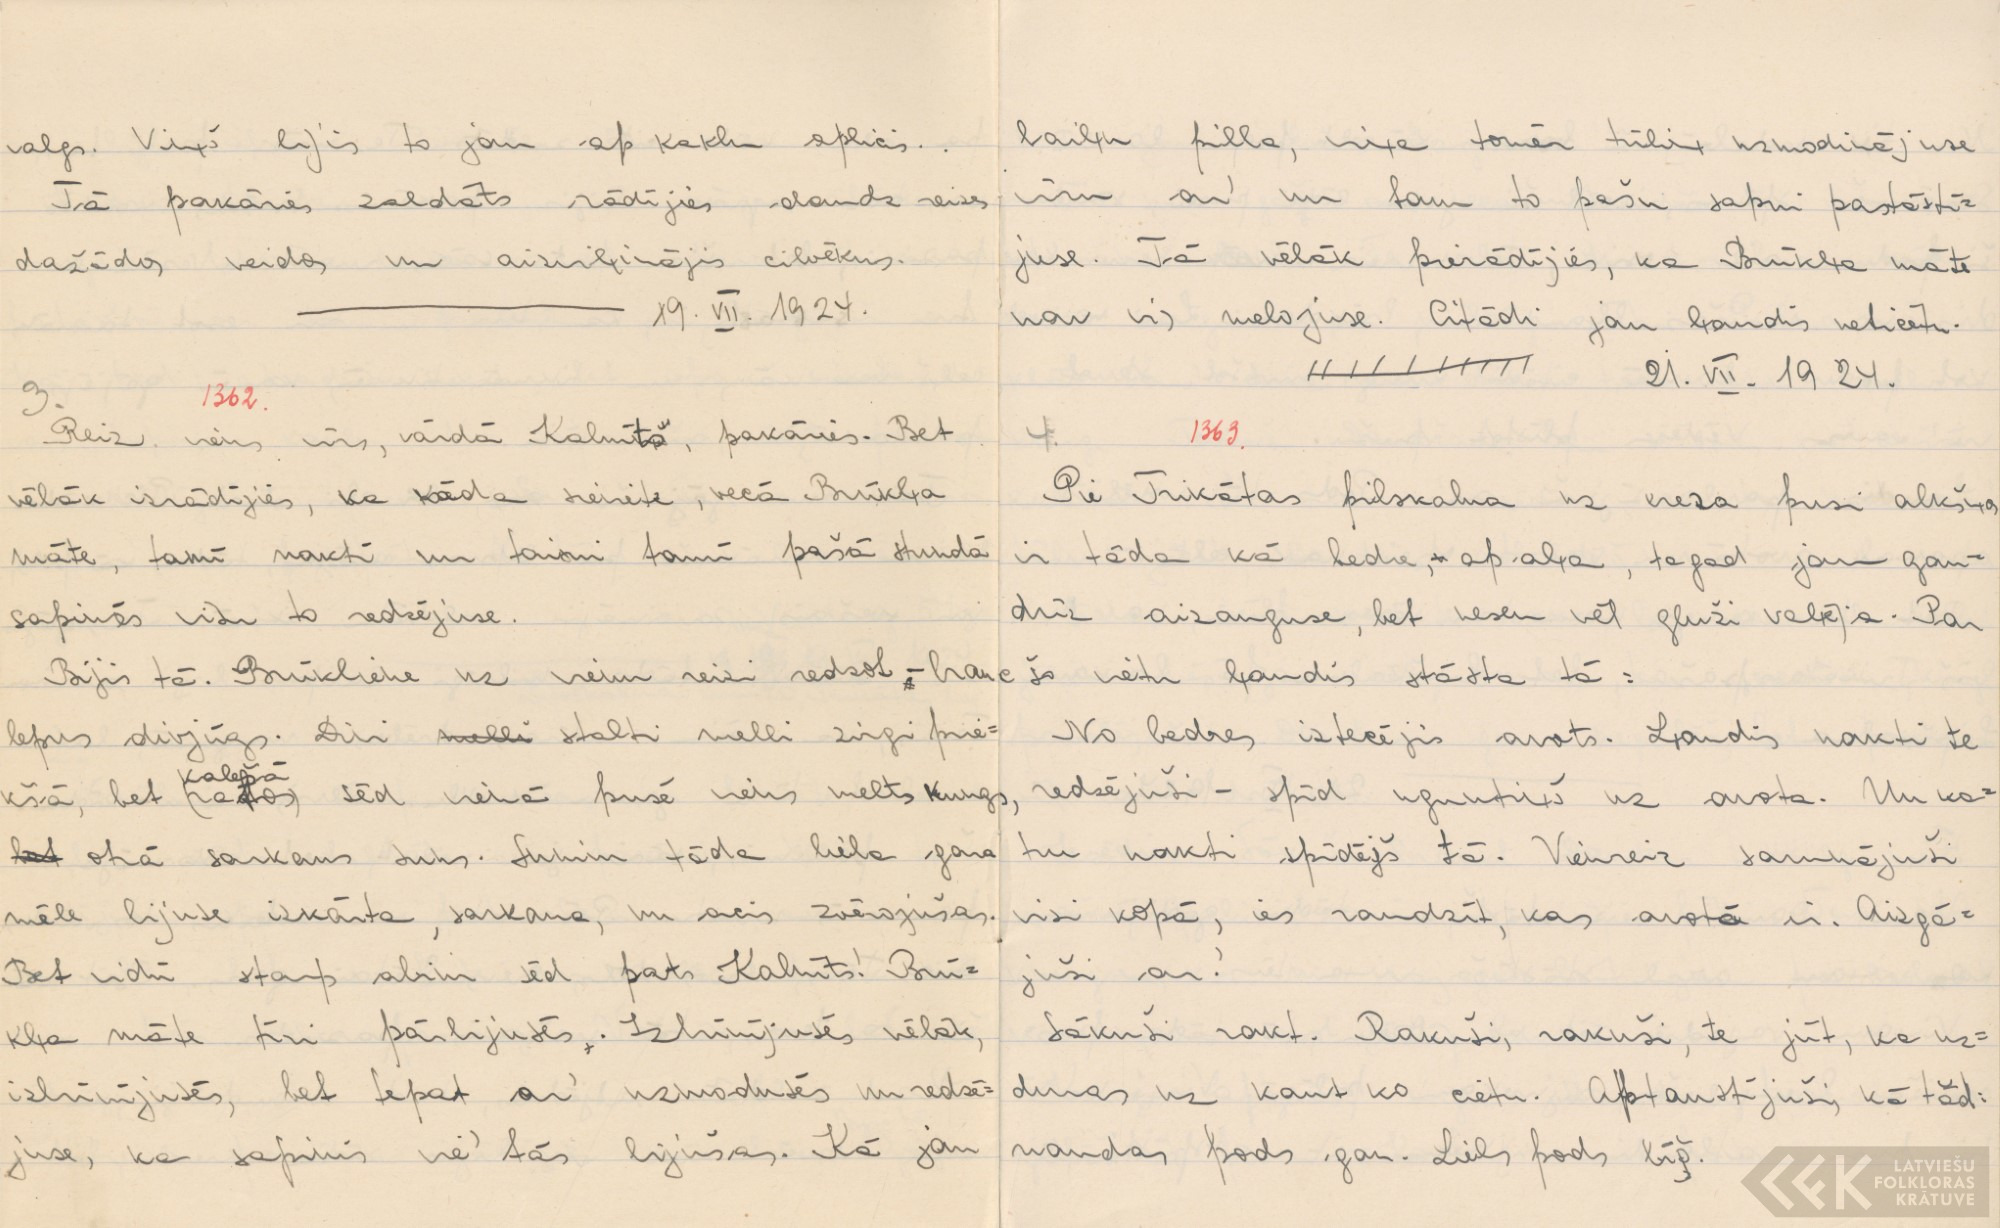 valgs. Viņš bijis to jau ap kaklu aplicis..
Tā pakāries zaldāts rādījies daudz reizes
dažādos veidos un aizvilinājis cilvēkus.
19. VII. 1924.
3. 1362.
Reiz viens vīrs, vārdā Kalnītš, pakāries. Bet
vēlāk izrādījies, ka kāda sieviete, vecā Brūkļa
māte, tamī naktī un taisni tamī pašā stundā
sapinōs visu to redzējuse.
Bijis tā. Brūkliene uz vienu reizi redzot, - brauc
lepns divjūgs. Divi melli stalti melli zirgi prie=
kšā, bet (ratos) kalešā sēd vienā pusē viens melts kungs,
bet otrā sarkans suns. Sunim tāda liela gara
mēle bijuse izkārta, sarkana, un acis zvērojušas.
Bet vidū starp abim sēd pats Kalnīts! Brū=
kļa māte tīri pārbijusēs. Izbrīnījusēs vēlāk,
izbrīnījusēs, bet tepat ar' uzmodusēs un redzē=
juse, ka sapinis vie' tās bijušas. Kā jau
lailņu pilla, viņa tomēr tūliņ uzmodinējuse
vīru ar' un tam to pašu sapni pastāstī=
juse. Tā vēlāk pierādījies, ka Brūkļa māte
nav vis melojuse. Citādi jau ļaudis neticētu.
21. VII. 1924.
4. 1363.
Pie Trikātas pilskalna uz vreza pusi alkšņos
ir tāda kā bedre, apaļa, tagad jau gan=
drīz aizauguse, bet nesen vēl gluži vaļēja. Par
šo vietu ļaudis stāsta tā:
No bedres iztecējis avots. Ļaudis nakti te
redzējuši - spīd uguntiņš uz avota. Un ka=
tru nakti spīdējš tā. Vienreiz sarunājuši
visi kopā, ies raudzīt, kas avotā ir. Aizgā=
juši ar'.
Sākuši rakt. Rakuši, rakuši, te jūt, ka uz=
duras uz kaut ko cietu. Aptaustījuši, kā tād:
naudas pods gan. Liels pods bīš.
LATVIEŠU
FOLKLORAS
KRĀTUVE